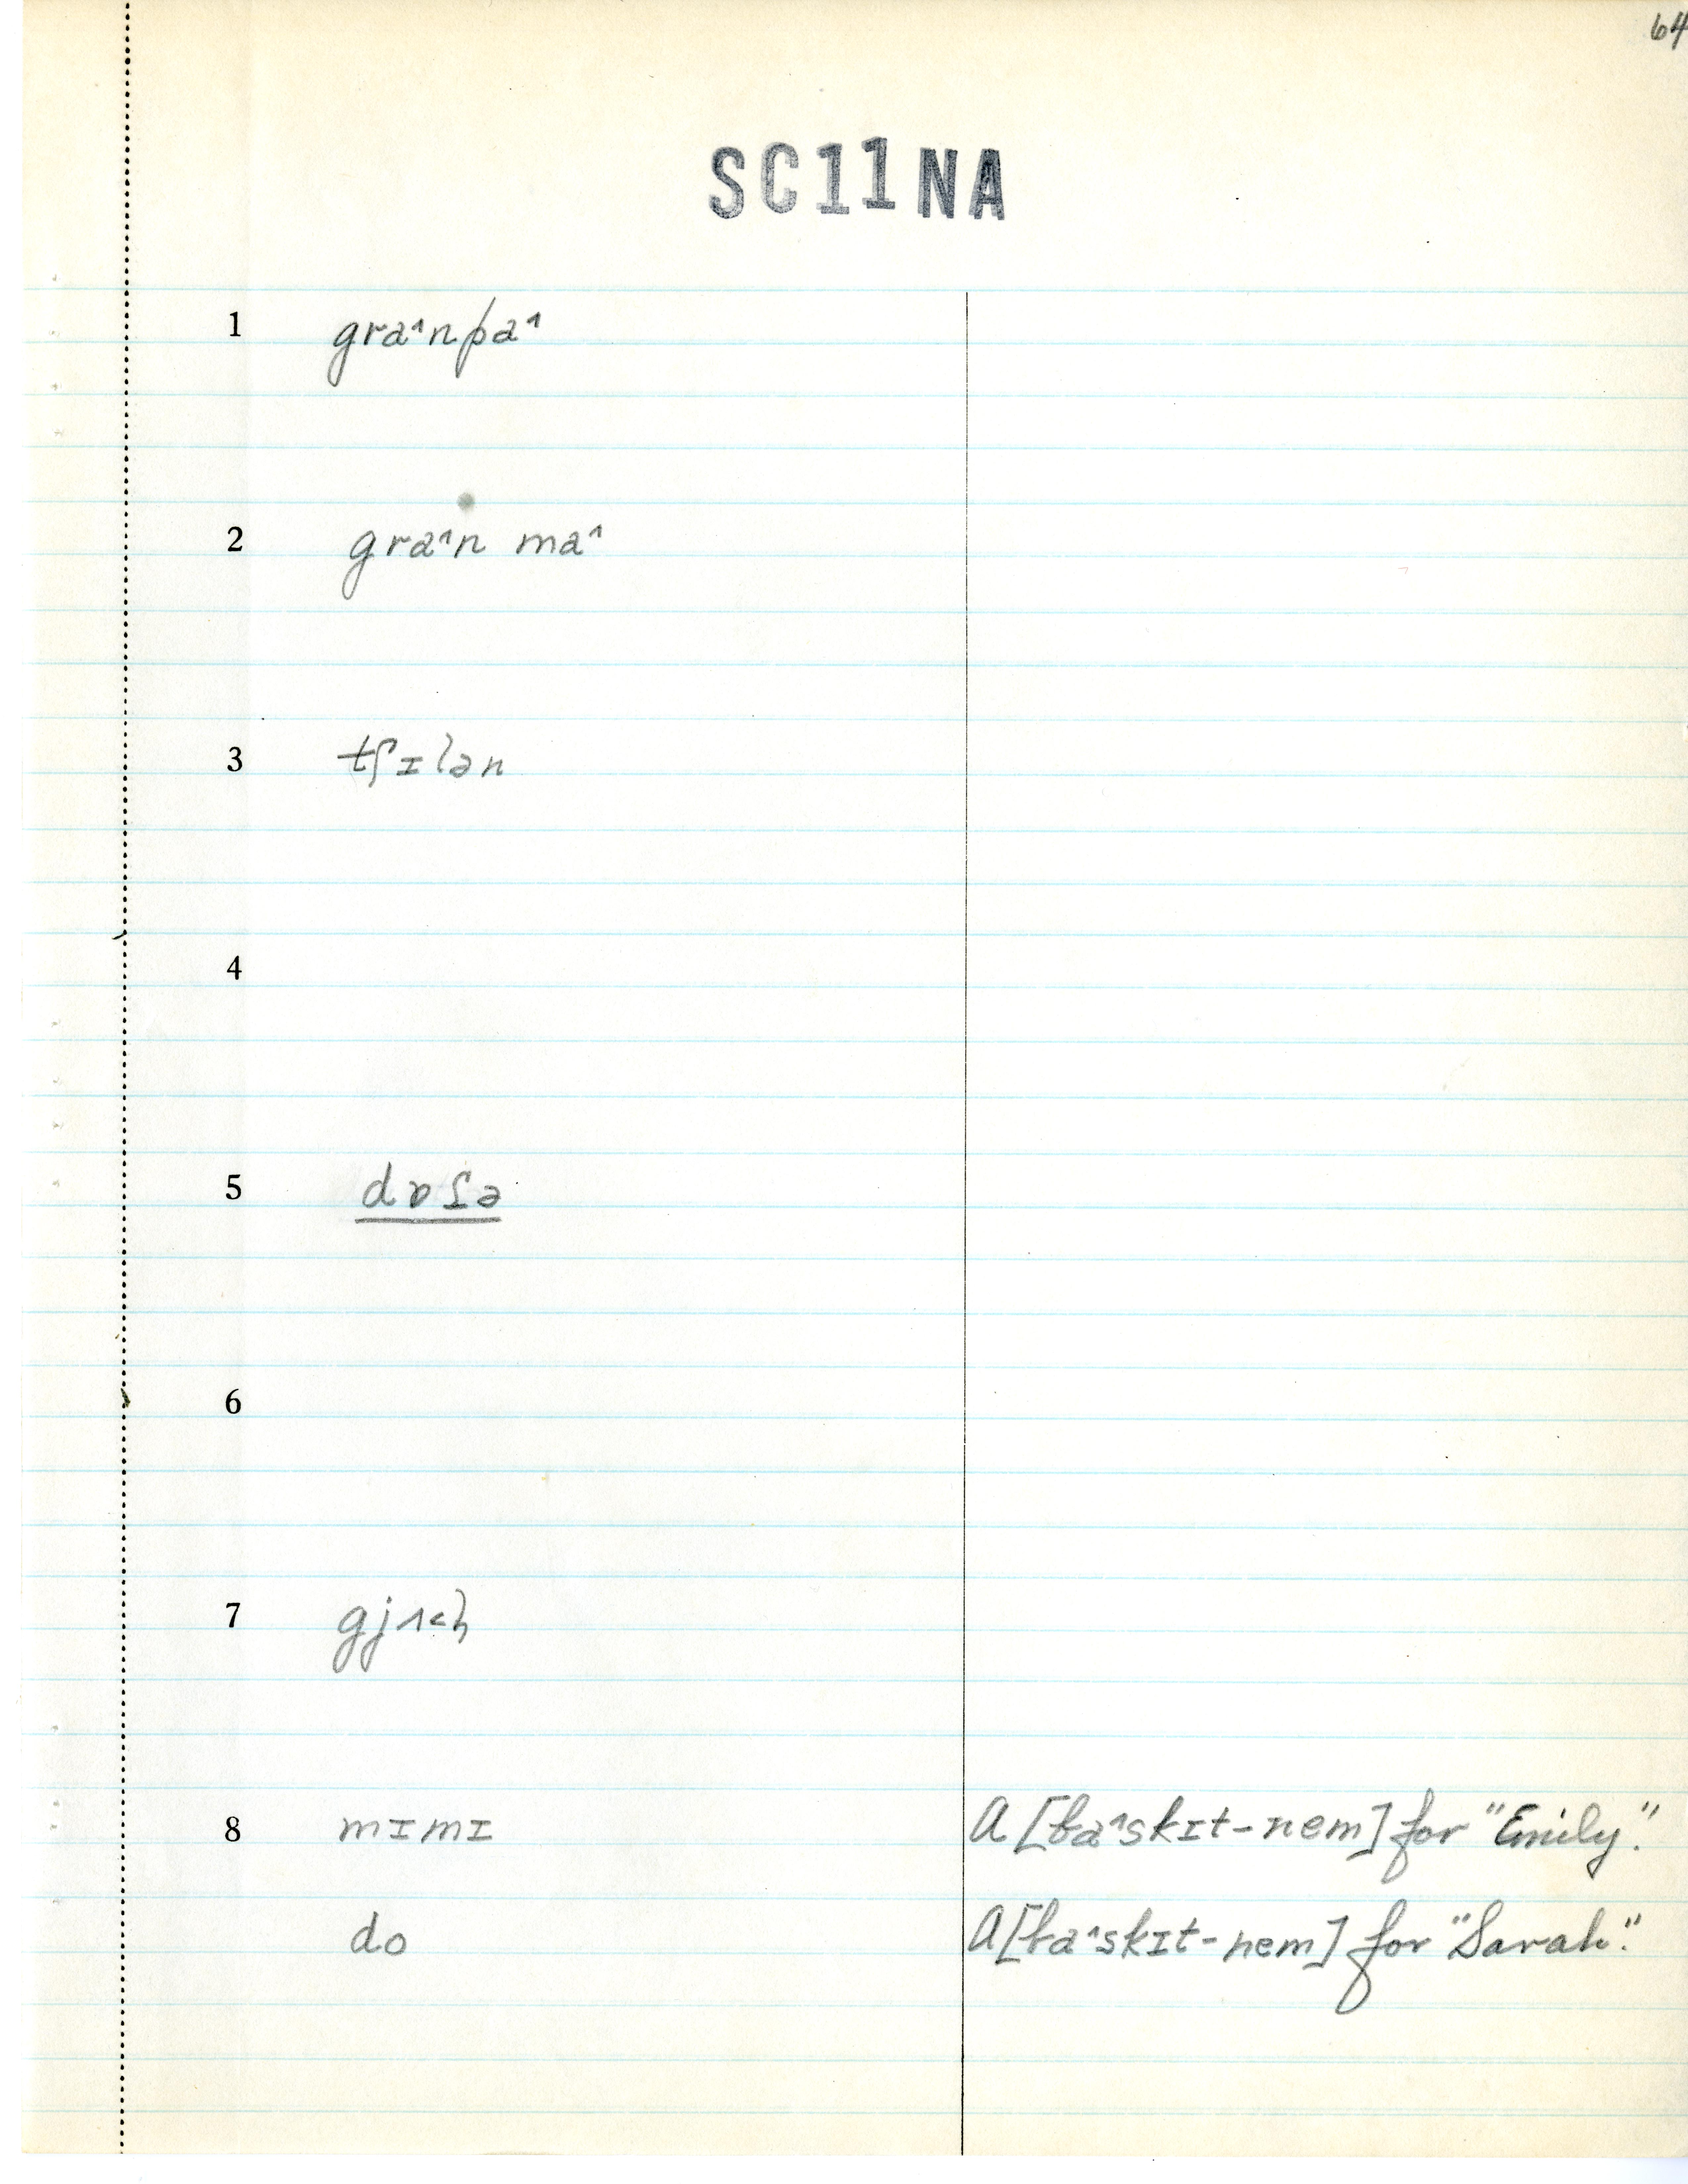 64
SC11NA
1 graˆnɸaˆ
2 graˆn maˆ
3 tʃɪlən
4
5
6
7
8 mɪmɪ A [baˆskɪt-nem] for "Emily."
do A [baˆskɪt-nem] for "Sarah."